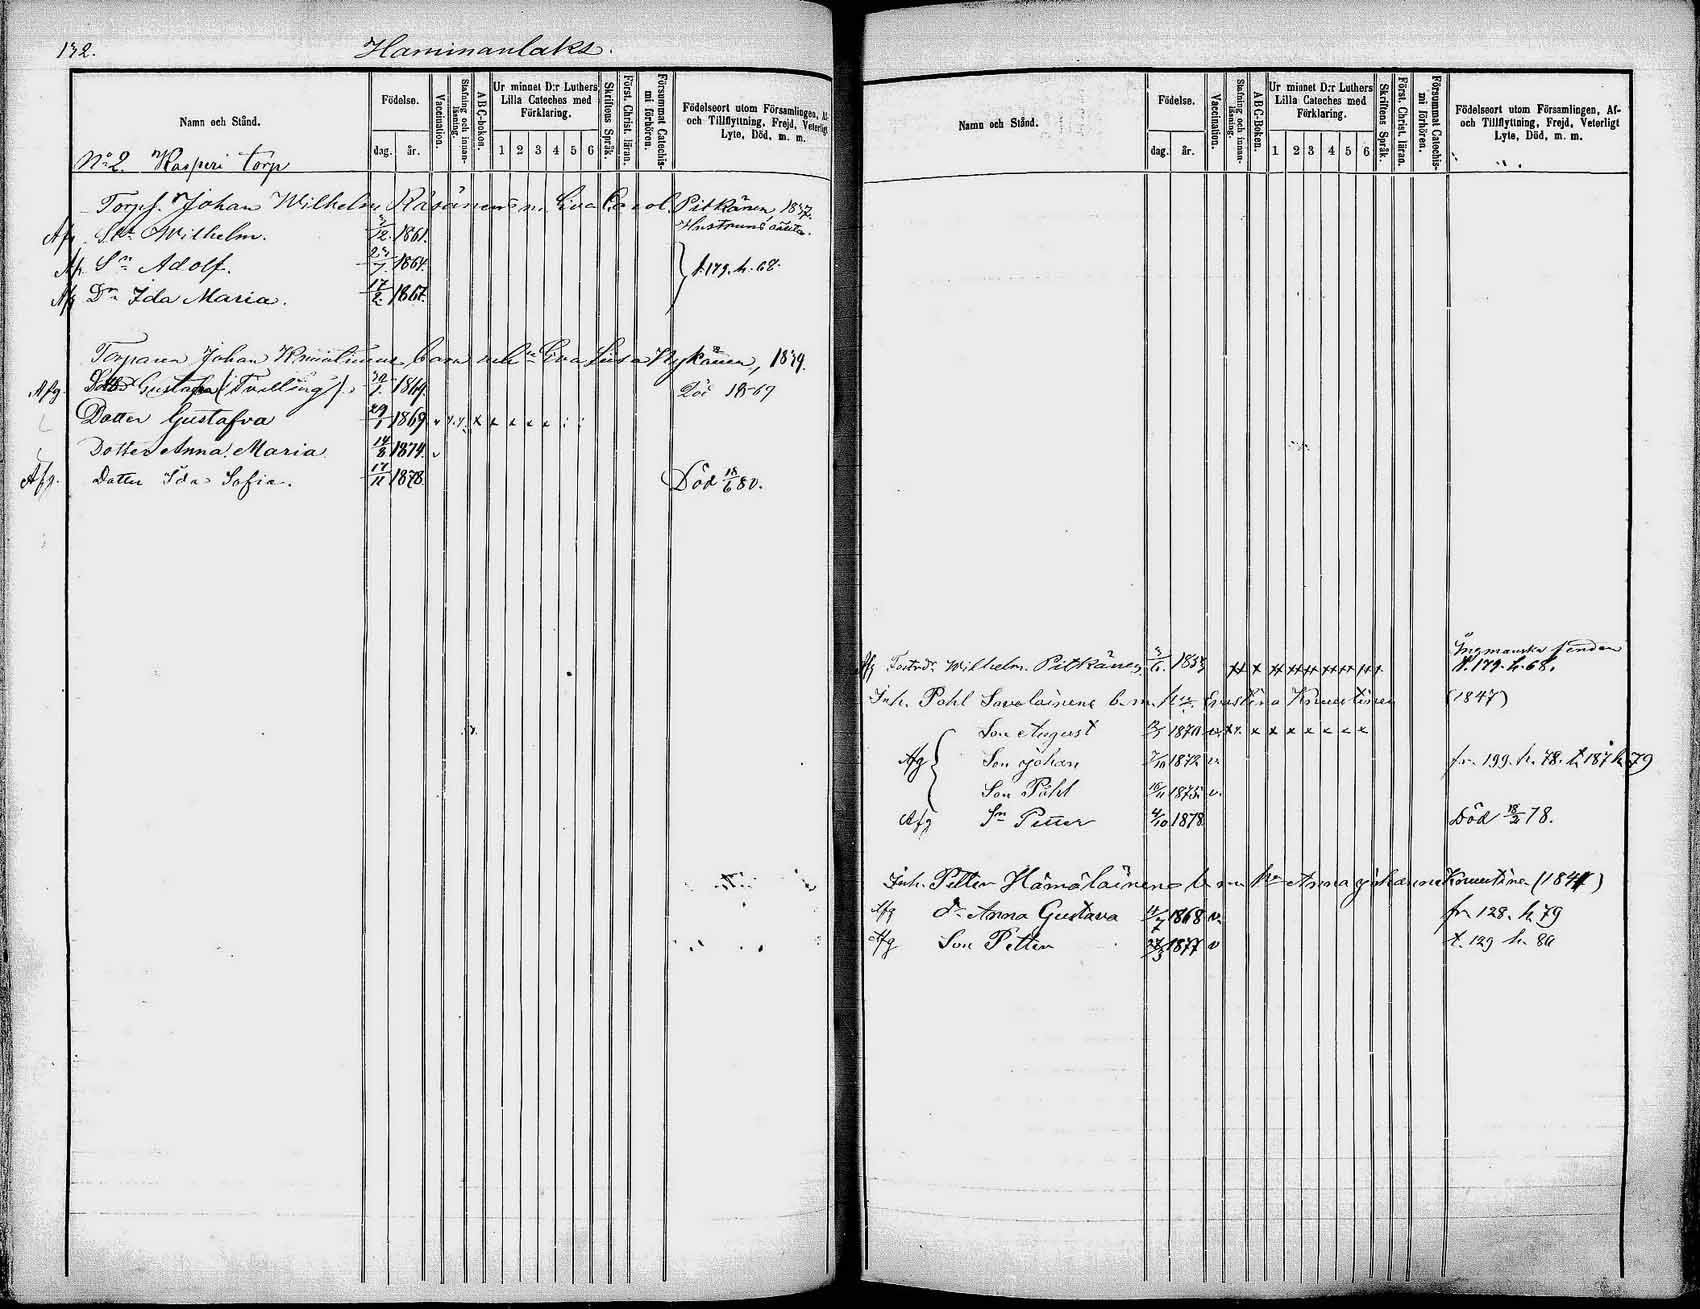 132.
Haminanlaks.
Namn och Stånd.
Födelse.
dag.
år.
Vaccination.
Stafning och innanläsning.
A B C-boken.
Ur minnet D:r Luthers Lilla Cateches med Förklaring.
1 2 3 4 5 6
Skriftens Språk.
Först. Christ. läran.
Försummat Catechismi förhören.
Födelseort utom Församlingen, Af- och Tillflyttning, Frejd, Veterligt Lyte, Död, m. m.
No 2. Kasperi torp
Torp. Johan Wilhelm Räsänens Eva Carol. Pitkänen, 1837.
Afg Sn Wilhelm. 12. 1861. Hustruns
Afg Sn Adolf. 23/7. 1864. t. 179. h. 68.
Afg Dr Ida Maria. 17/2. 1867.
Torparen Johan Knuutinens barn Eva Lisa 1839.
Afg. (Tvilling) 1869. Död 1869
Dotter Gustafva 29/1 1869 v x x x x x x x
Dotter Anna Maria 14/8 1874. v
Afg. Dotter Ida Sofia. 17/11 1878. Död 18/6 80.
Namn och Stånd.
Födelse.
dag.
år.
Vaccination.
Stafning och innanläsning.
A B C-Boken.
Ur minnet D:r Luthers Lilla Cateches med Förklaring.
1 2 3 4 5 6
Skriftens Språk.
Först. Christ. läran.
Försummat Catechismi förhören.
Födelseort utom Församlingen, Af- och Tillflyttning, Frejd, Veterligt Lyte, Död, m. m.
Afg Wilhelm Pitkänen t. 179. h. 68.
Inh. Påhl Savolainens b. m. h. Kristina Knuutinen (1847)
Son August 1870 v x x x x x x x x
Afg Son Johan 7/10 1872 v fr. 199. h. 78. t. 187 h. 79
Son Påhl 1875. v.
Afg Sn Petter 4/10 1878 Död 18/2 78.
Inh. Petter Hämäläinens b. m. h. Anna Johanna Knuutinen (1841)
Afg dr Anna Gustava 1868 v. fr 128. h. 79
Afg Son Petter 1877 v t. 129 h. 80